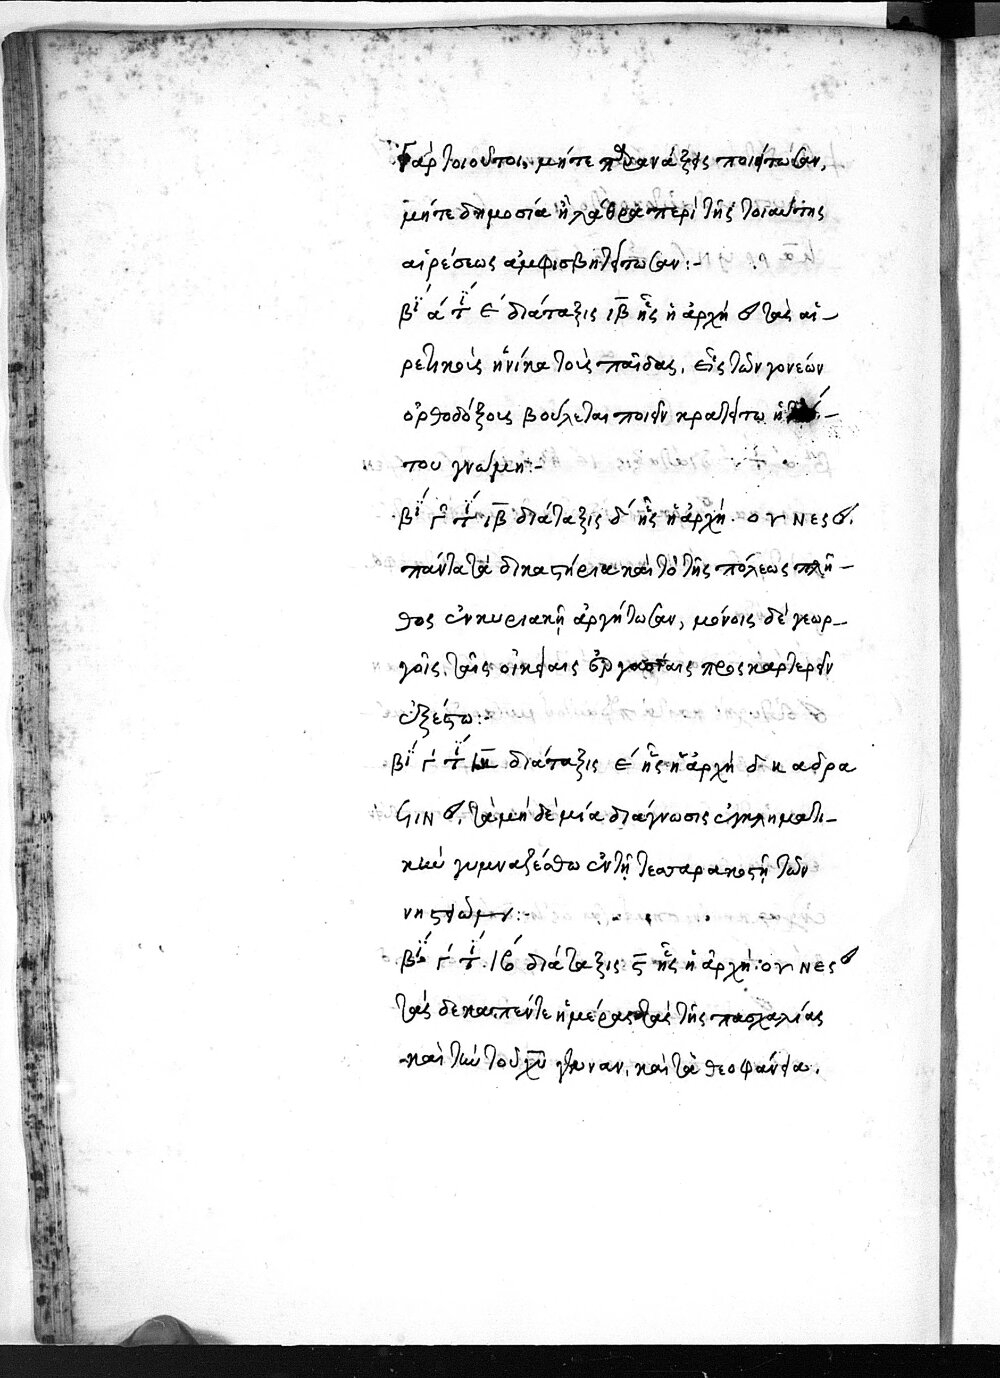 γὰρ τοιοῦτοι, μήτε συνάξεις ποιείτωσαν,
μήτε δημοσία ἢ λάθρα περὶ τῆς τοιαύτης
αἱρέσεως ἀμφισβητείτωσαν:-
βι ά τι ε διάταξις ιβ ἧς ἡ ἀρχὴ τὰς αἱ-
ρετικοὺς ἡνίκα τοὺς παῖδας, εἷς τῶν γονέων
ὀρθοδόξους βούλεται ποιεῖν κρατείτω ἡ
που γνώμη:-
βι γ τι ιβ διάταξις δ ἧς ἡ ἀρχή. ονηες
πάντα τὰ δικαστήρια καὶ τὸ τῆς πόλεως πλῆ-
θος ἐν κυριακῇ ἀργήτωσαν, μόνοις δὲ γεωρ-
γοῖς, ταῖς οἰκείαις ἐργασίαις προσκαρτερεῖν
ἐξέστω:-
βι γ τι διάταξις ε ἧς ἡ ἀρχὴ κ αδρα
GIN τὰ μὴ δὲ μία διάγνωσις ἐγκληματι-
κὴ γυμναζέσθω ἐν τῇ τεσσαρακοστῇ τῶν
νηστειῶν:-
βι γ τι ιβ διάταξις ϛ ἧς ἡ ἀρχή: ονηες
τὰς δεκαπέντε ἡμέρας τὰς τῆς πασχαλίας
καὶ τὴν τοῦ χῦ γένναν, καὶ τὰ θεοφάνεια.